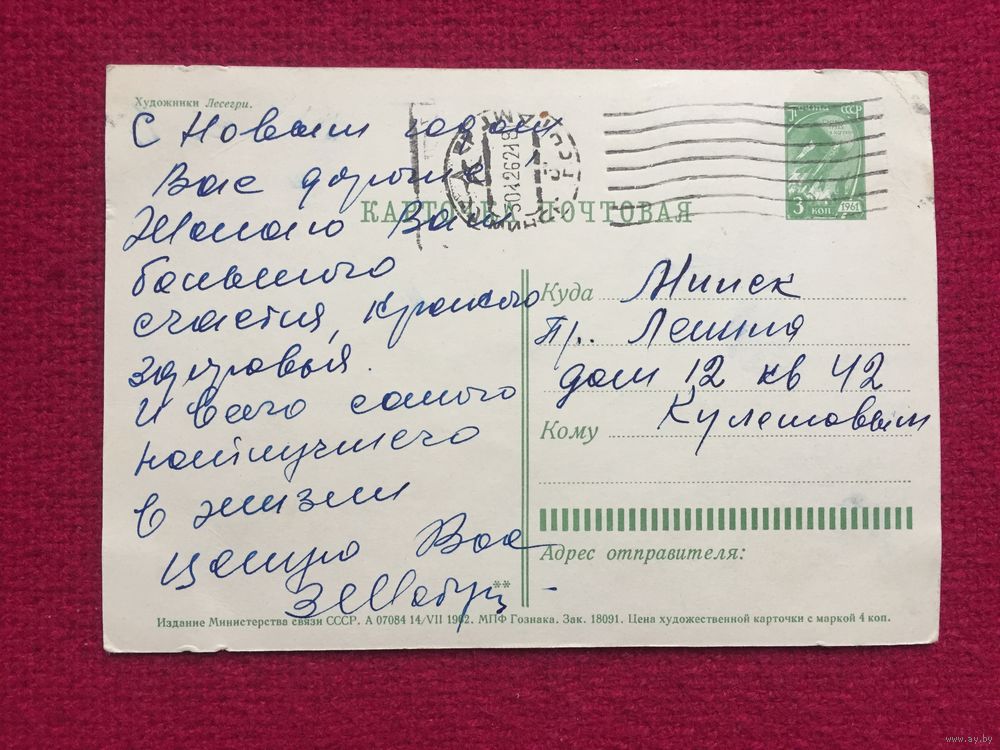 Художники Лесегри.
С Новым годом
Вас дорогие!
Желаю Вам
большого
счастья, крепкого
здоровья.
И всего самого
наилучшего
в жизни
целую Вас
КАРТОЧКА ПОЧТОВАЯ
ПОЧТА СССР
3 коп
1961
Куда Минск
Пр.. Ленина
дом 12 кв 42
Кому Кулешовым
Адрес отправителя:
**
Издание Министерства связи СССР. А 07084 14/VII 1962. МПФ Гознака. Зак. 18091. Цена художественной карточки с маркой 4 коп.
www.ay.by